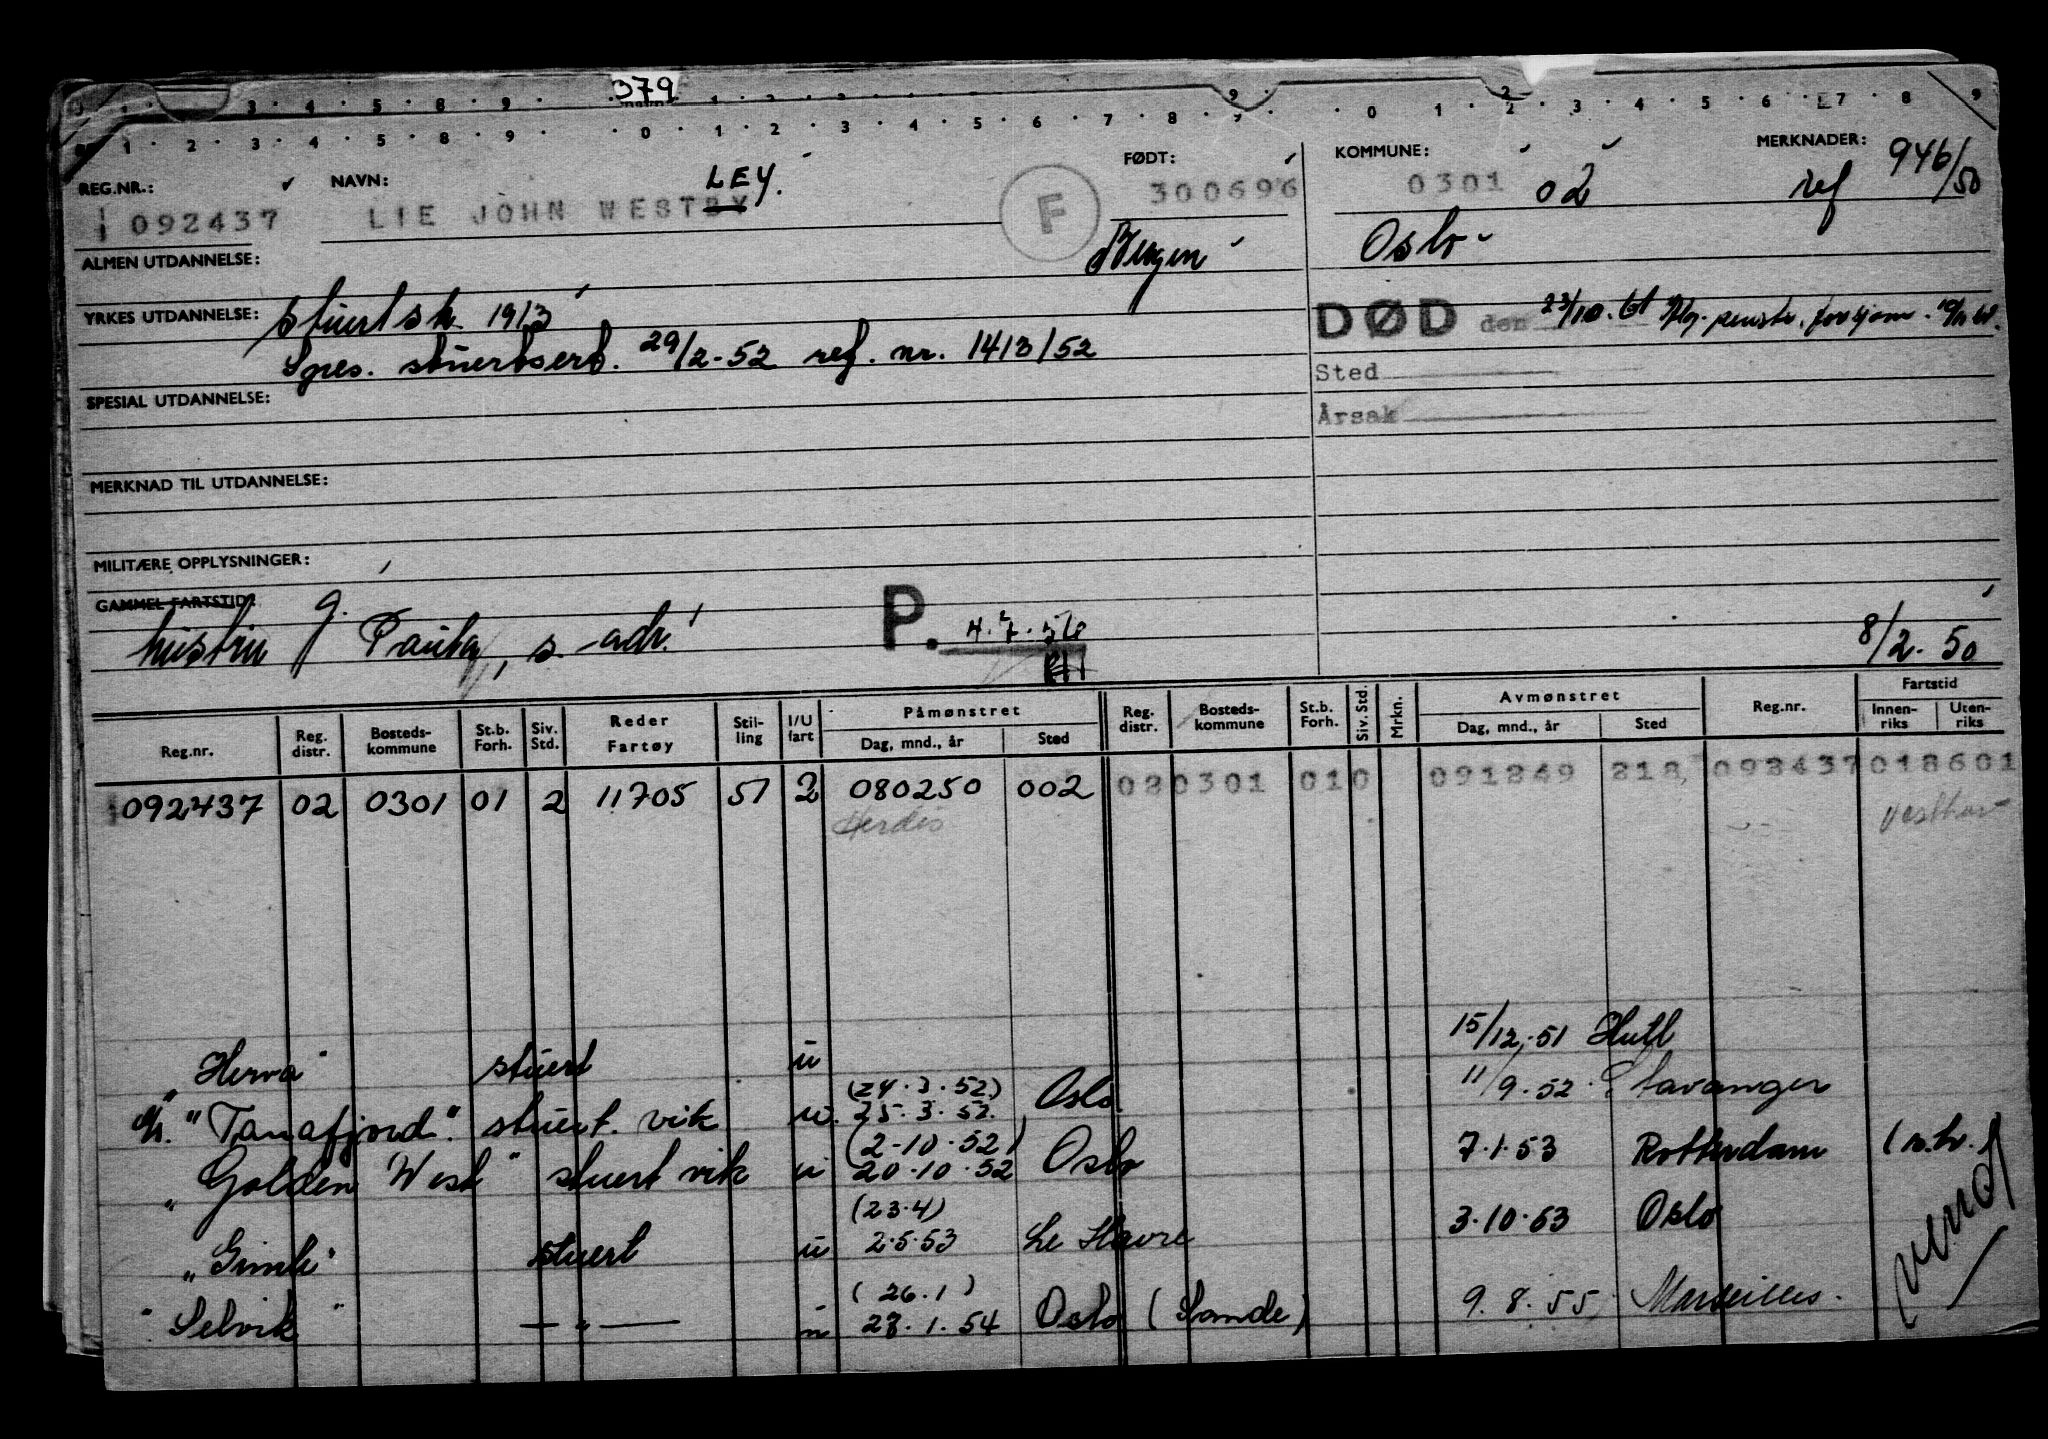 379
3 4 5 8 9 1 2 2 3 4 5 6 7 8 9
1 2 3 4 5 8 9 0 1 2 3 4 5 6 7 8 9 0 1 2 3 4 5 6 7 8 9
REG.NR.: NAVN: LEY. FØDT: KOMMUNE: MERKNADER: 946/50
092437 LIE JOHN WESTBY F 300696 0301 02 ref
ALMEN UTDANNELSE: Bergen Oslo
YRKES UTDANNELSE: stuertsk. 1913 DØD den 23/10.61
Spes. stuertsert. 29/2-52 ref. nr. 1413/52
Sted
SPESIAL UTDANNELSE: Årsak
MERKNAD TIL UTDANNELSE:
MILITÆRE OPPLYSNINGER:
GAMMEL FARTSTID:
hustru g. Paula, s. adr. P. 4.7.56 8/2-50
Reg.nr. Reg. distr. Bosteds-kommune St.b. Forh. Siv. Std. Reder Fartøy Stil-ling I/U fart Påmønstret Dag, mnd., år Sted Reg. distr. Bosteds-kommune St.b. Forh. Siv. Std. Mrkn. Avmønstret Dag, mnd., år Sted Reg.nr. Fartstid Innen-riks Uten-riks
092437 02 0301 01 2 11705 51 2 080250 002 02 0301 01 0 091249 218 092437 018601
Herdis Vesthav
"Herva" stuert u 15/12.51 Hull
"Tanafjord". stuert. vik u. (24.3.52) 25.3.52. Oslo 11/9.52 Stavanger
"Golden West" stuert vik u (2-10.52) 20.10.52 Oslo 7.1.53 Rotterdam
"Gimle" stuert u (23.4) 2.5.53 Le Havre 3.10.53 Oslo
"Selvik" — " — u (26.1) 28.1.54 Oslo (Sande) 9.8.55 Marseilles.
(vend)